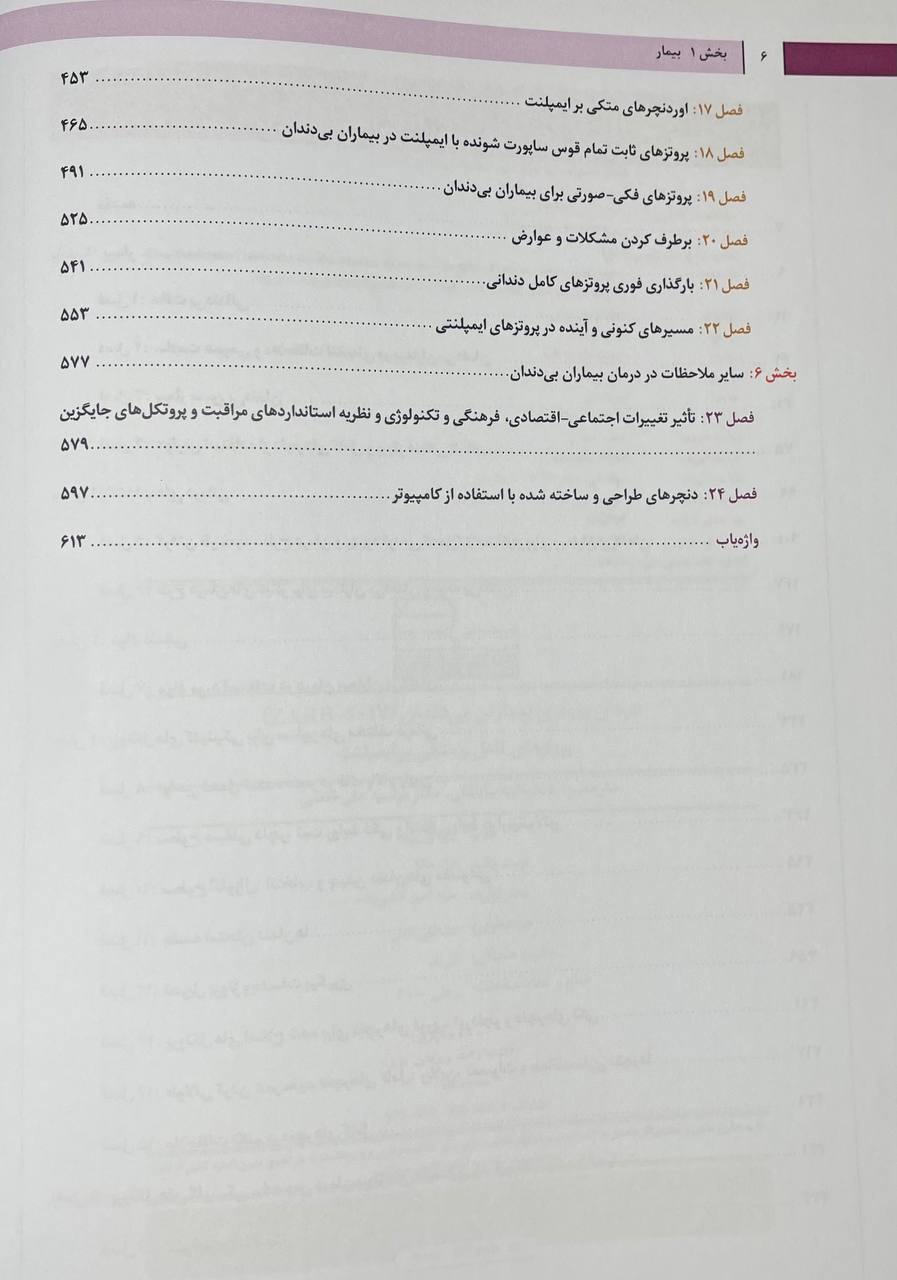 ۶ بخش ۱ بیمار
فصل ۱۷: اوردنچرهای متکی بر ایمپلنت ........................ ۴۵۳
فصل ۱۸: پروتزهای ثابت تمام قوس ساپورت شونده با ایمپلنت در بیماران بی‌دندان ........................ ۴۶۵
فصل ۱۹: پروتزهای فکی-صورتی برای بیماران بی‌دندان ........................ ۴۹۱
فصل ۲۰: برطرف کردن مشکلات و عوارض ........................ ۵۲۵
فصل ۲۱: بارگذاری فوری پروتزهای کامل دندانی ........................ ۵۴۱
فصل ۲۲: مسیرهای کنونی و آینده در پروتزهای ایمپلنتی ........................ ۵۵۳
بخش ۶: سایر ملاحظات در درمان بیماران بی‌دندان ........................ ۵۷۷
فصل ۲۳: تأثیر تغییرات اجتماعی-اقتصادی، فرهنگی و تکنولوژی و نظریه استانداردهای مراقبت و پروتکل‌های جایگزین
........................ ۵۷۹
فصل ۲۴: دنچرهای طراحی و ساخته شده با استفاده از کامپیوتر ........................ ۵۹۷
واژه‌یاب ........................ ۶۱۳